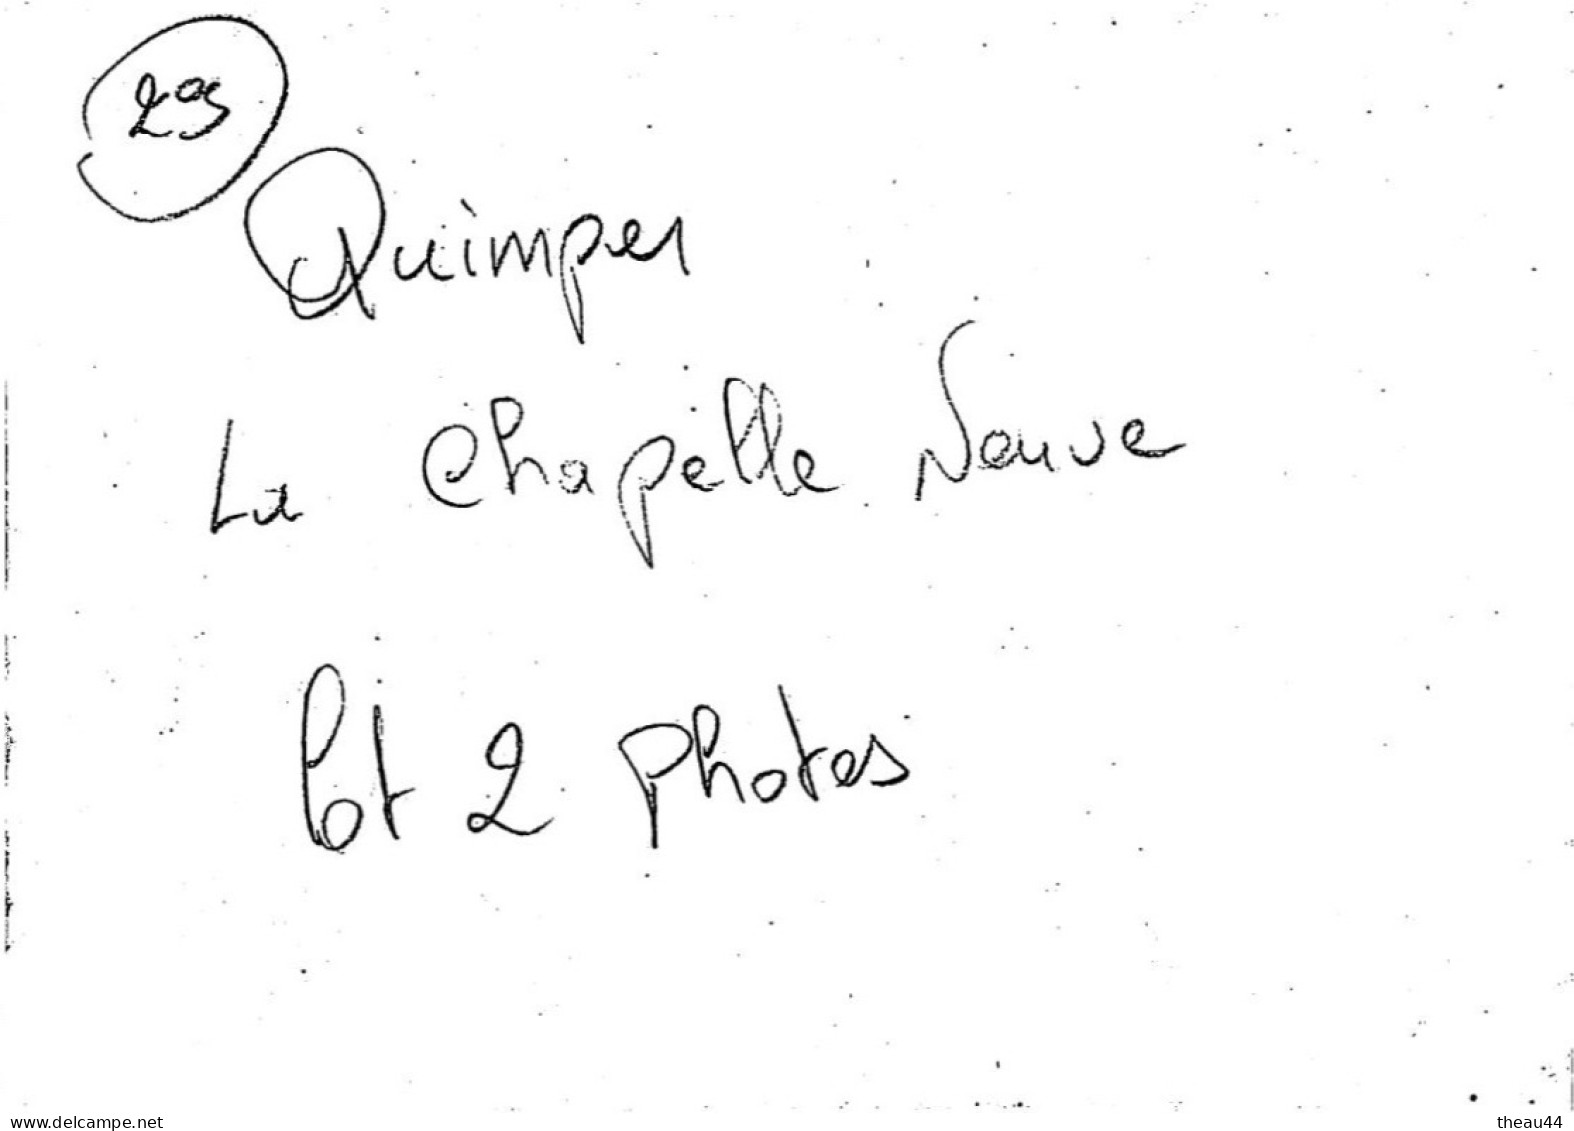 29
Quimper
La Chapelle Neuve
lot 2 photos
www.delcampe.net
theau44